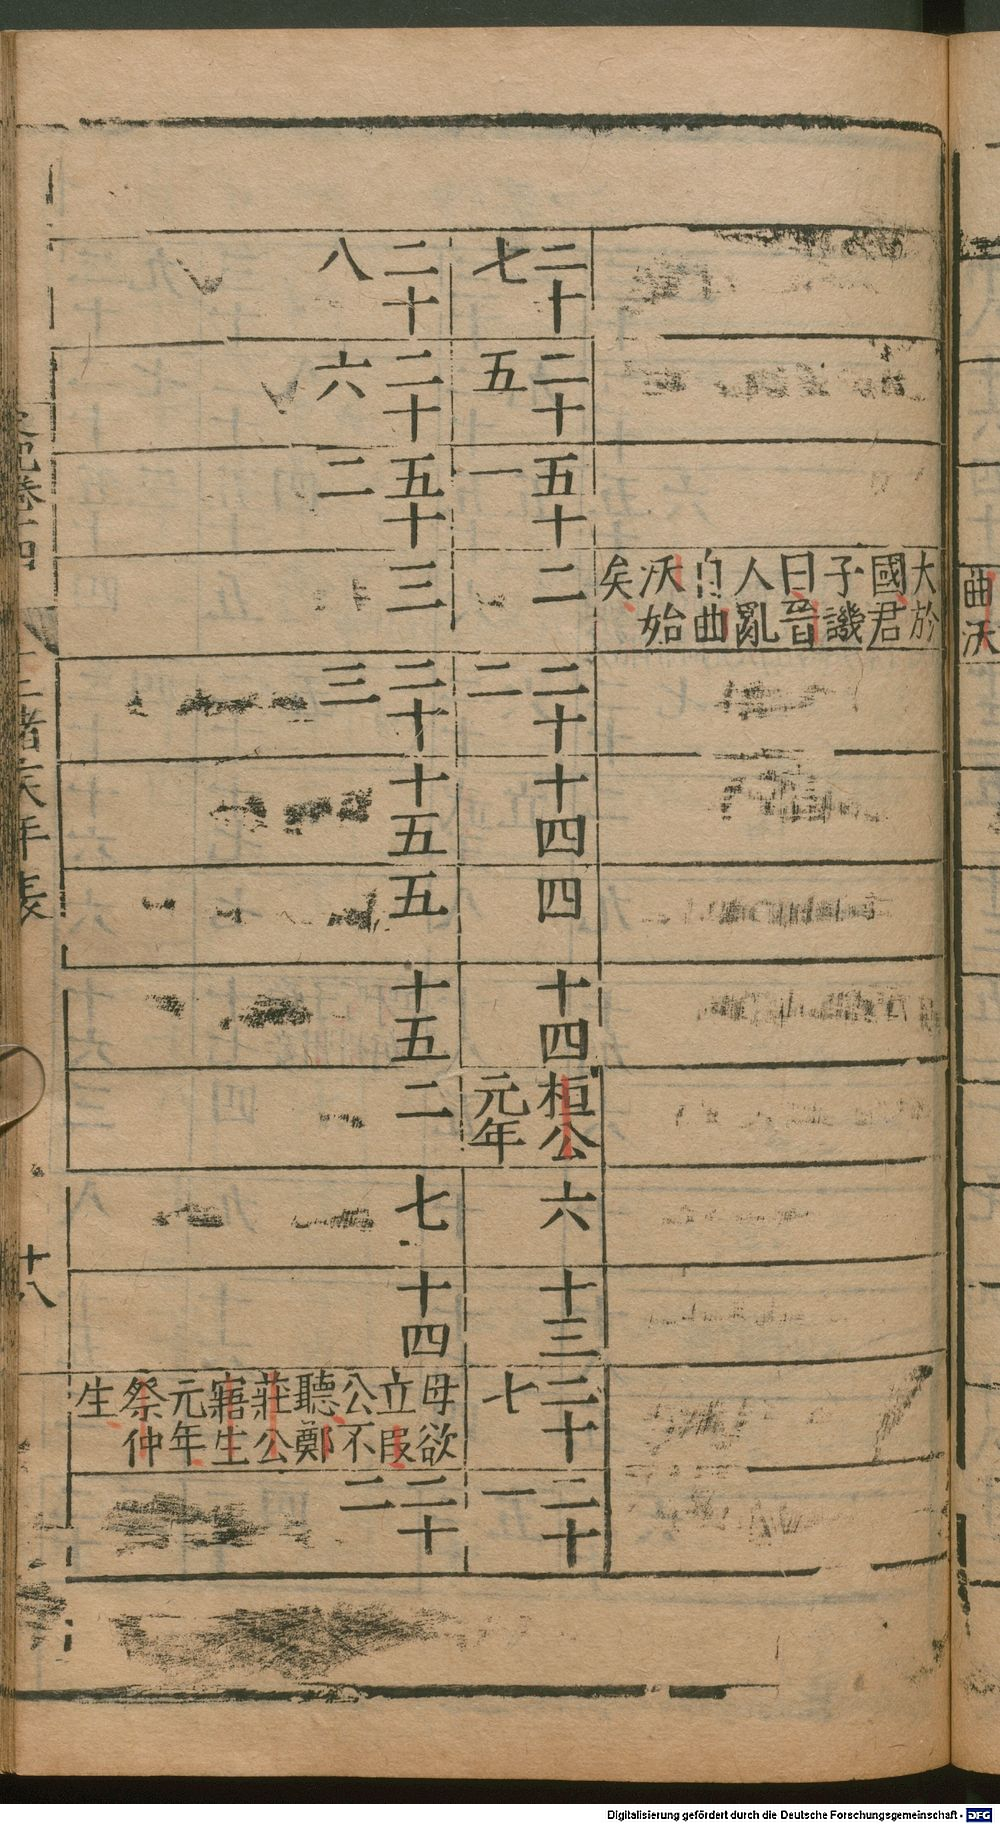 曲沃
大於
國君
子譏
曰晉
人亂
自曲
沃始
矣
二十
七
二十
五
五十
一
二
二十
二
十四
四
十四
桓公
元年
六
十三
二十
七
二十
一
二十
八
二十
六
五十
二
三
二十
三
十五
五
十五
二
七
十四
母欲
立段
公不
聽鄭
莊公
寤生
元年
祭仲
生
二十
二
卷十四
諸侯年表
十八
Digitalisierung gefördert durch die Deutsche Forschungsgemeinschaft - DFG